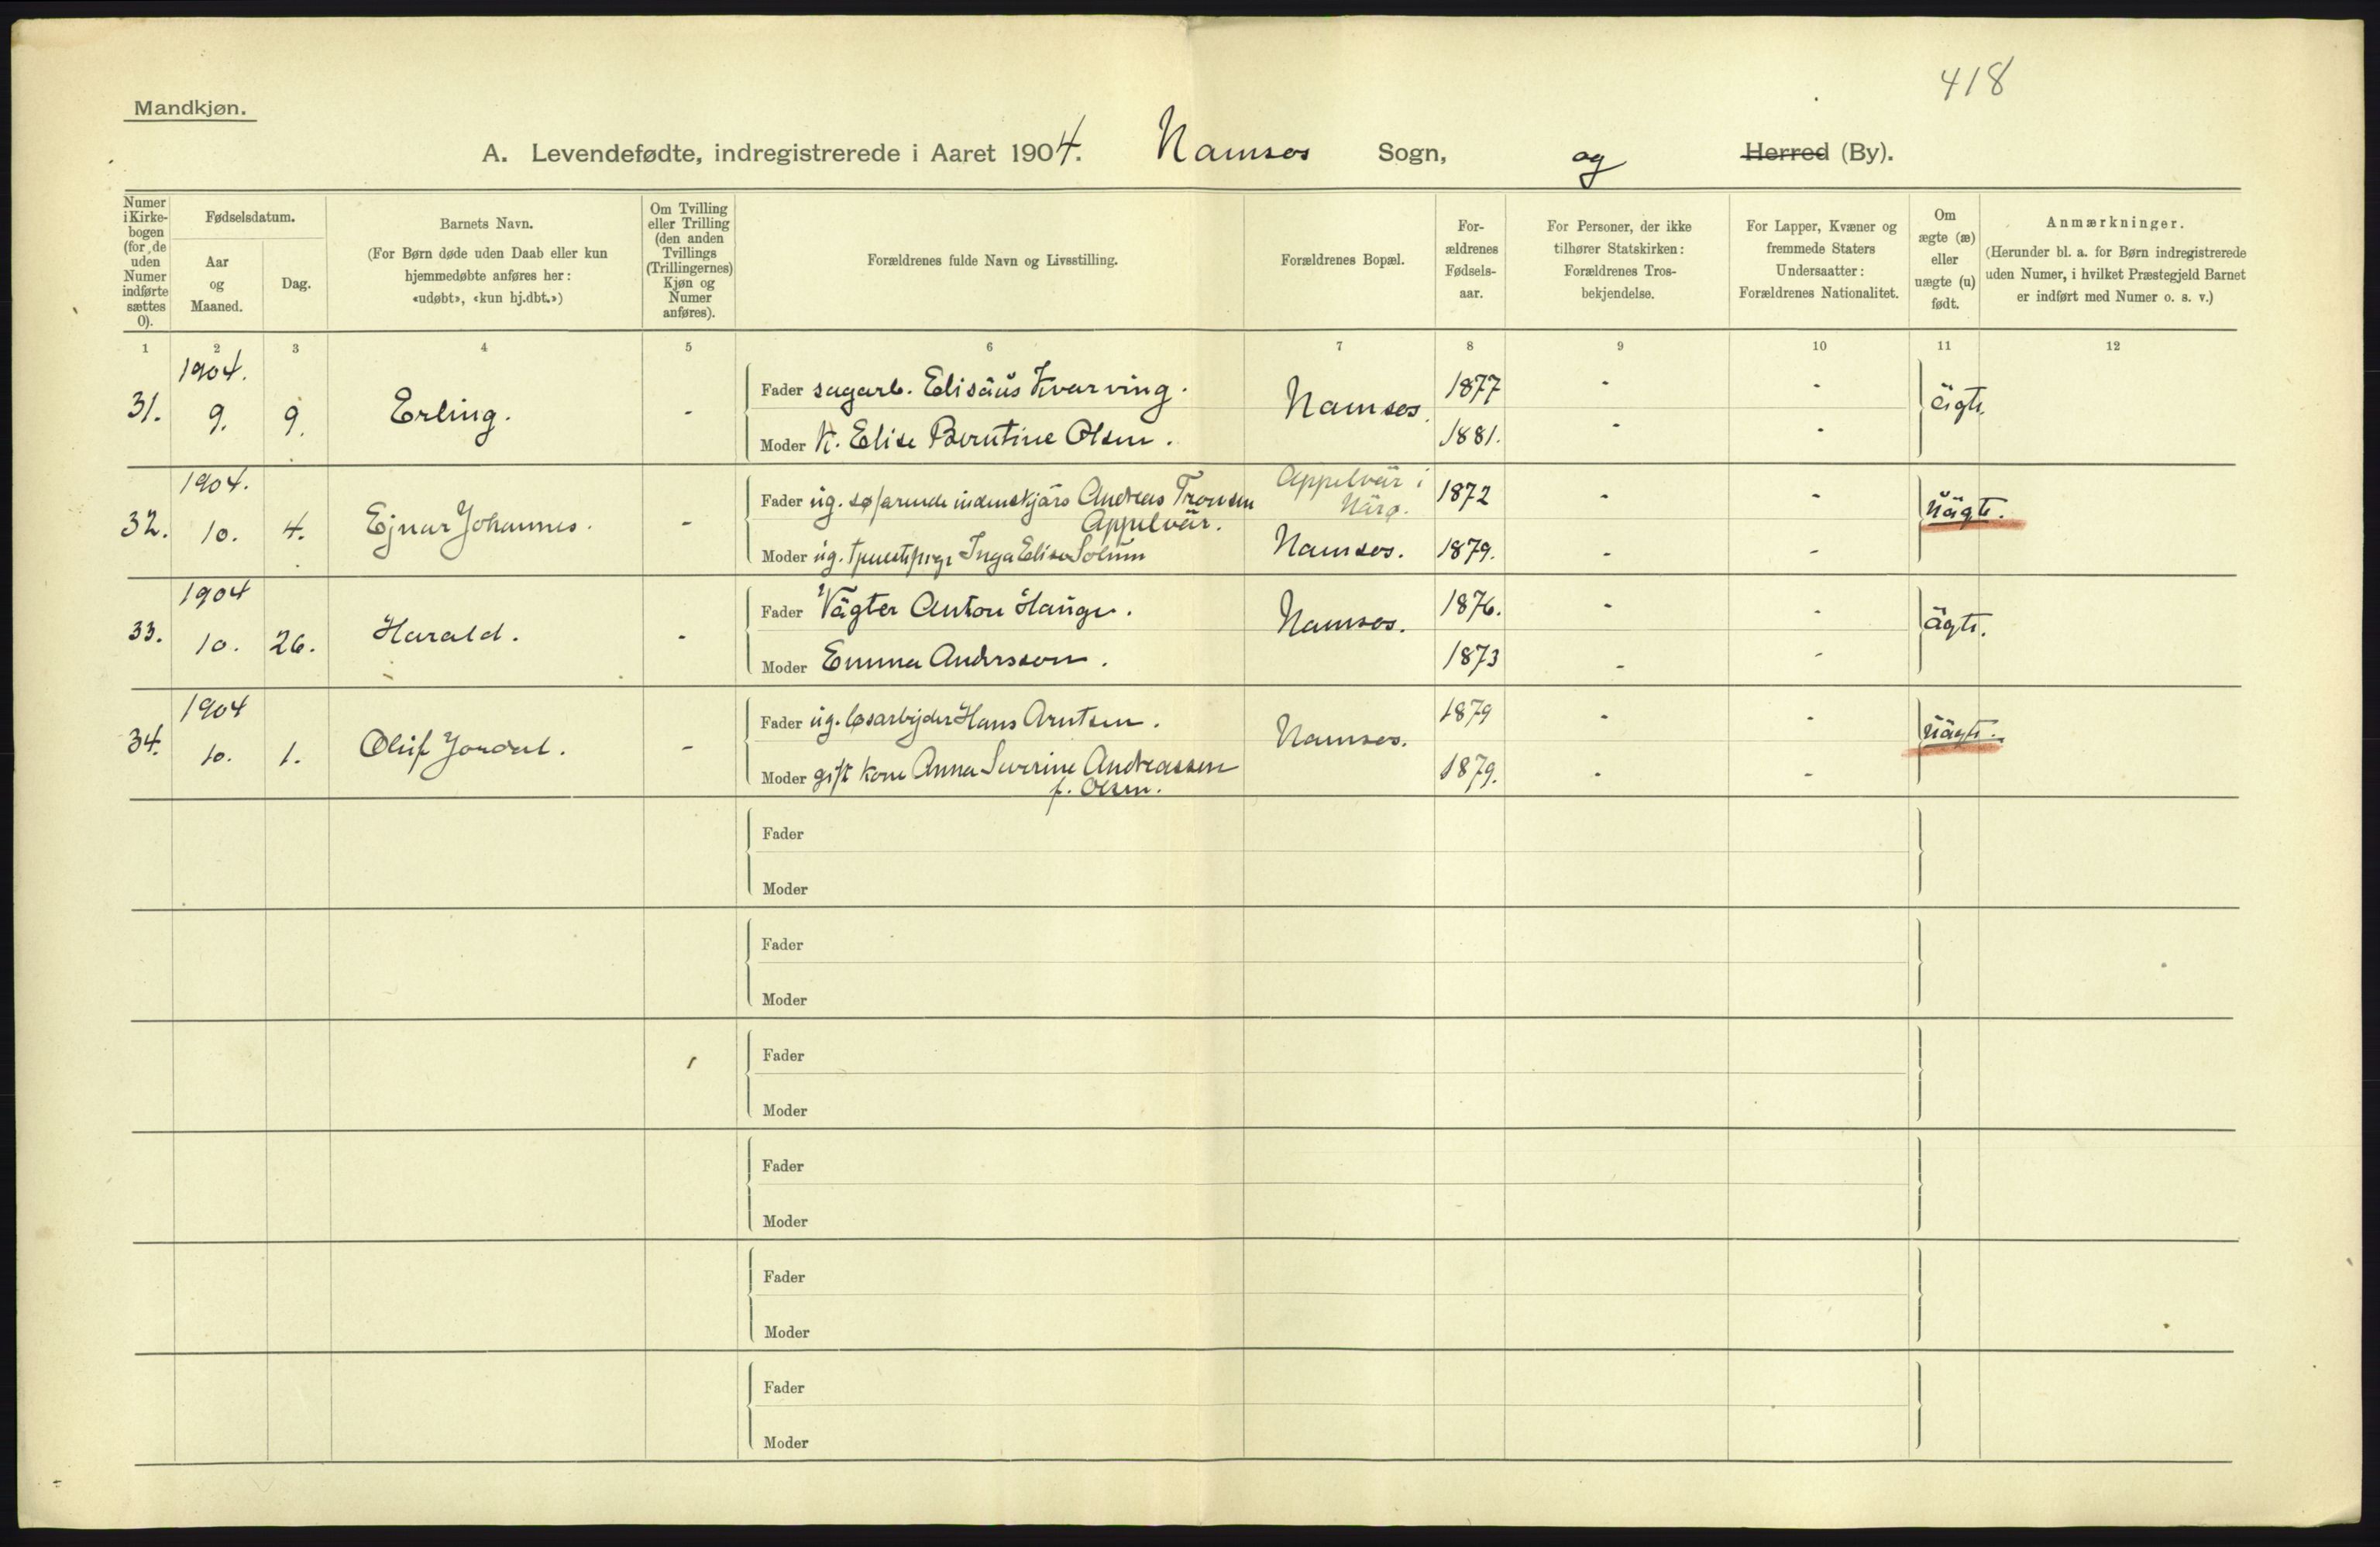 418
Mandkjøn.
A. Levendefødte, indregistrerede i Aaret 1904. Namsos Sogn, og Herred (By).
Numer i Kirkebogen (for de uden Numer indførte sættes 0).
Fødselsdatum.
Aar og Maaned.
Dag.
Barnets Navn.
(For Børn døde uden Daab eller kun hjemmedøbte anføres her: «udøbt», «kun hj.dbt.»)
Om Tvilling eller Trilling (den anden Tvillings (Trillingernes) Kjøn og Numer anføres).
Forældrenes fulde Navn og Livsstilling.
Forældrenes Bopæl.
Forældrenes Fødselsaar.
For Personer, der ikke tilhører Statskirken: Forældrenes Trosbekjendelse.
For Lapper, Kvæner og fremmede Staters Undersaatter: Forældrenes Nationalitet.
Om ægte (æ) eller uægte (u) født.
Anmærkninger.
(Herunder bl. a. for Børn indregistrerede uden Numer, i hvilket Præstegjeld Barnet er indført med Numer o. s. v.)
1 2 3 4 5 6 7 8 9 10 11 12
1904.
31. 9. 9. Erling. - Fader sagarb. Elisäus Kvarving. Namsos. 1877 - - ägte.
Moder K. Elise Berntine Olsen. 1881. - -
1904.
32. 10. 4. Ejnar Johannes. - Fader ug. søfarende indenskjärs Andreas Tronsen Appelvär. Appelvär i Närø. 1872 - - uägte.
Moder ug. Inga Elise Solum Namsos. 1879. - -
1904
33. 10. 26. Harald. - Fader Vägter Anton Hauge. Namsos. 1876. - - ägte.
Moder Emma Andersson. 1873 - -
1904
34. 10. 1. Oluf Jordal. - Fader ug. løsarbejder Hans Arntsen. Namsos. 1879 - - uägte.
Moder gift kone Anna Severine Andreassen f. Olsen. 1879. - -
Fader
Moder
Fader
Moder
Fader
Moder
Fader
Moder
Fader
Moder
Fader
Moder